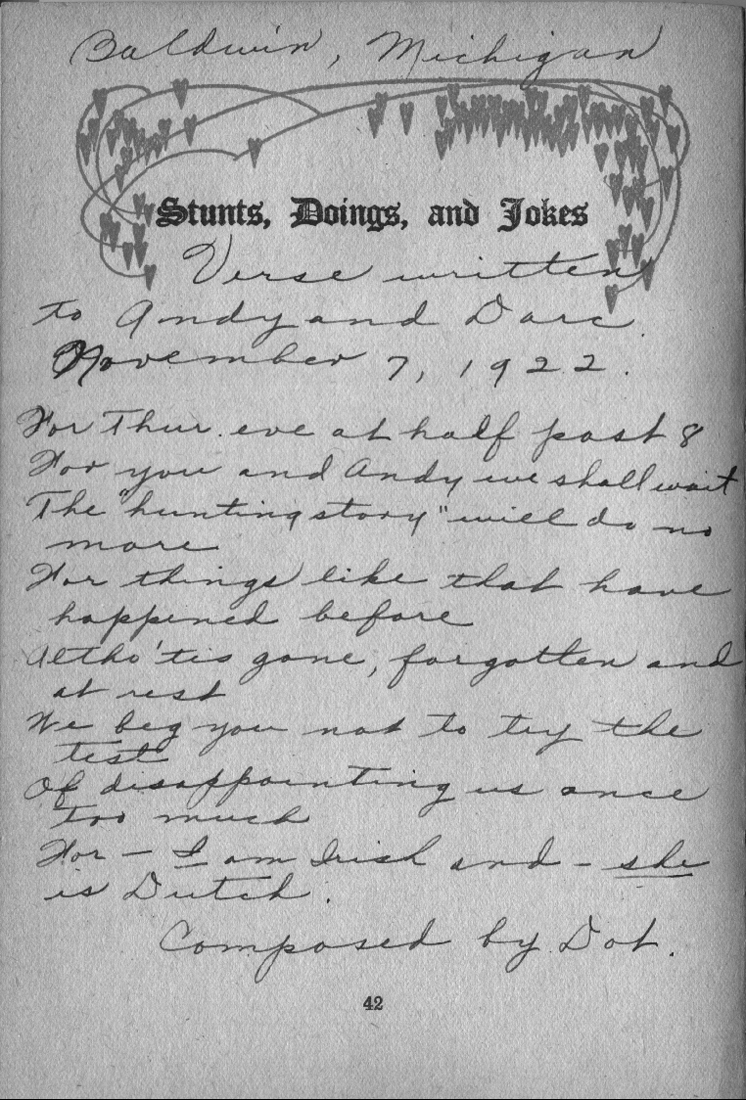 Baldwin, Michigan
Stunts, Doings, and Jokes
Verse written
to Andy and Darc.
November 7, 1922.
For Thur. eve at half past 8
For you and Andy we shall wait
The "hunting story" will do no
more
For things like that have
happened before
Altho 'tis gone, forgotten and
at rest
We beg you not to try the
test
Of disappointing us once
too much
For - I am Irish and - she
is Dutch.
Composed by Dot.
42